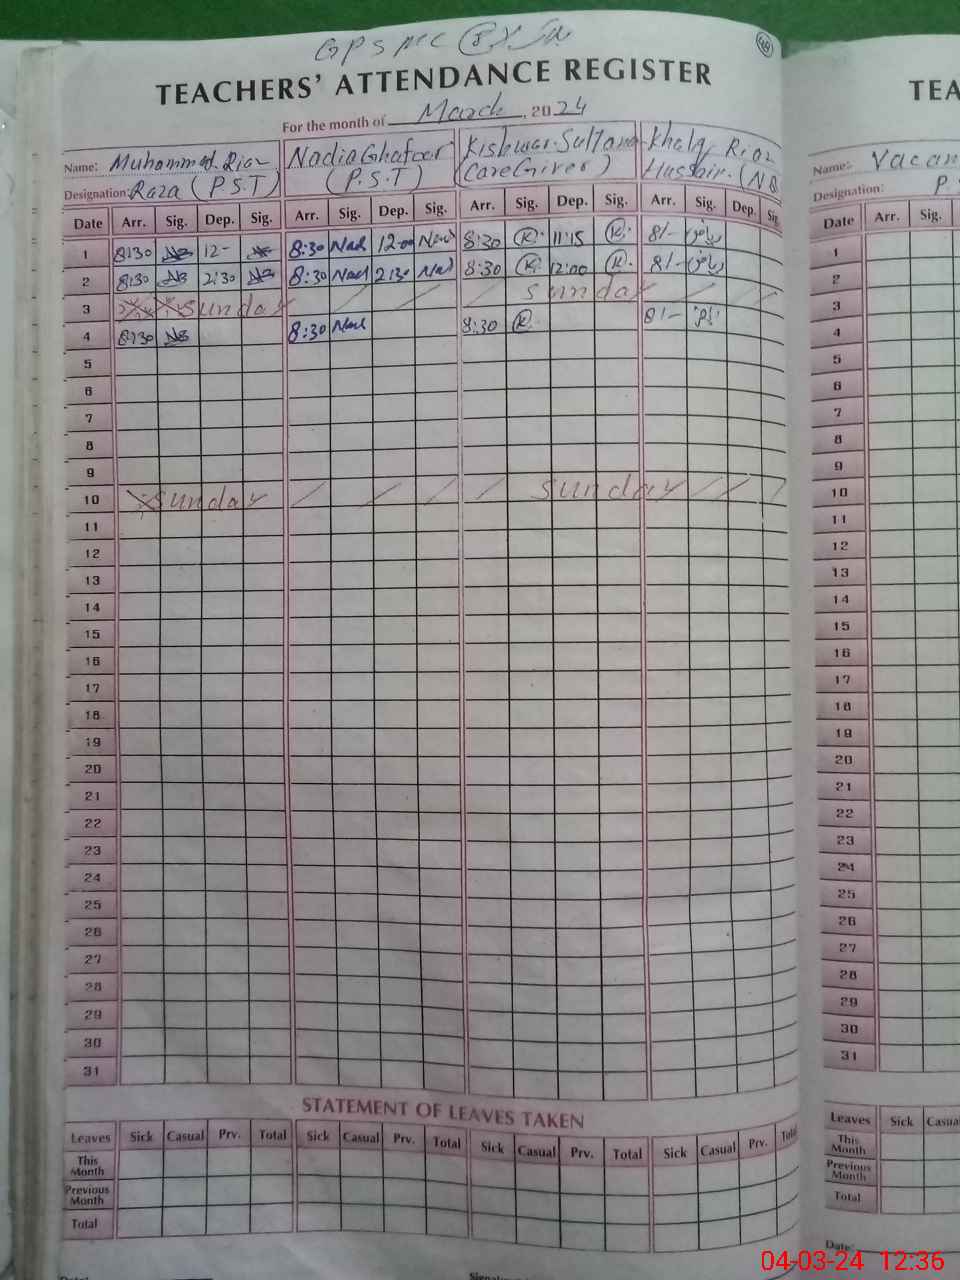 GPS MC
48
TEACHERS' ATTENDANCE REGISTER
For the month of March, 2024
Name: Muhammad Riaz Nadia Ghafoor Kishwar Sultana Khalq Riaz
Designation: Raza (P.S.T) (P.S.T) (CareGiver) Hussain.
Date Arr. Sig. Dep. Sig. Arr. Sig. Dep. Sig. Arr. Sig. Dep. Sig. Arr. Sig. Dep. Sig.
1 8:30 12- 8:30 Nad 12-00 Nad 8:30 K. 11:15 K. 8/- ریاض
2 8:30 2:30 8:30 Nad 2:30 Nad 8:30 K. 12:00 K. 8/- ریاض
3 Sunday Sunday
4 8:30 8:30 Nad 8:30 K. 8/-
5
6
7
8
9
10 Sunday Sunday
11
12
13
14
15
16
17
18
19
20
21
22
23
24
25
26
27
28
29
30
31
STATEMENT OF LEAVES TAKEN
Leaves Sick Casual Prv. Total Sick Casual Prv. Total Sick Casual Prv. Total Sick Casual Prv. Total
This Month
Previous Month
Total
TEA
Name: Vacan
Designation: P.
Date Arr. Sig.
1
2
3
4
5
6
7
8
9
10
11
12
13
14
15
16
17
18
19
20
21
22
23
24
25
26
27
28
29
30
31
Leaves Sick Casua
This Month
Previous Month
Total
Date:
04-03-24 12:36